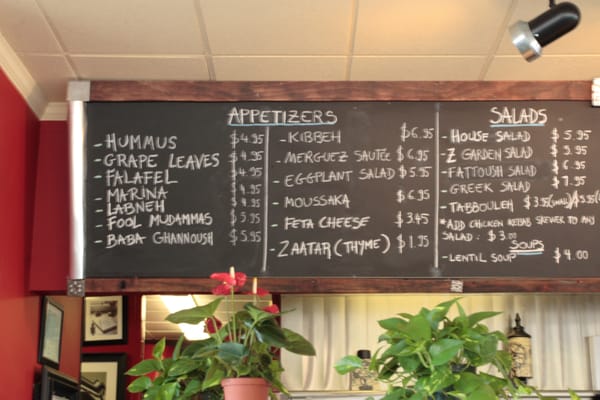 APPETIZERS
- HUMMUS $4.95
- GRAPE LEAVES $4.95
- FALAFEL $4.95
- MARINA $4.95
- LABNEH $4.95
- FOOL MUDAMMAS $5.95
- BABA GHANNOUSH $5.95
- KIBBEH $6.95
- MERGUEZ SAUTÉE $6.95
- EGGPLANT SALAD $5.95
- MOUSSAKA $6.95
- FETA CHEESE $3.45
- ZAATAR (THYME) $1.95
SALADS
- HOUSE SALAD $5.95
- Z GARDEN SALAD $5.95
- FATTOUSH SALAD $6.95
- GREEK SALAD $7.95
- TABBOULEH $3.95 (SMALL)
*ADD CHICKEN KEBAB SKEWER TO ANY
SALAD: $3.00
SOUPS
- LENTIL SOUP $4.00